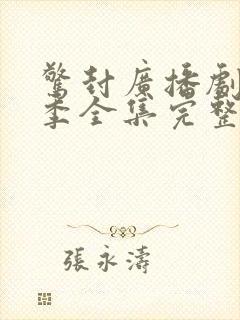 驚封廣播劇
季全集完整
張永濤